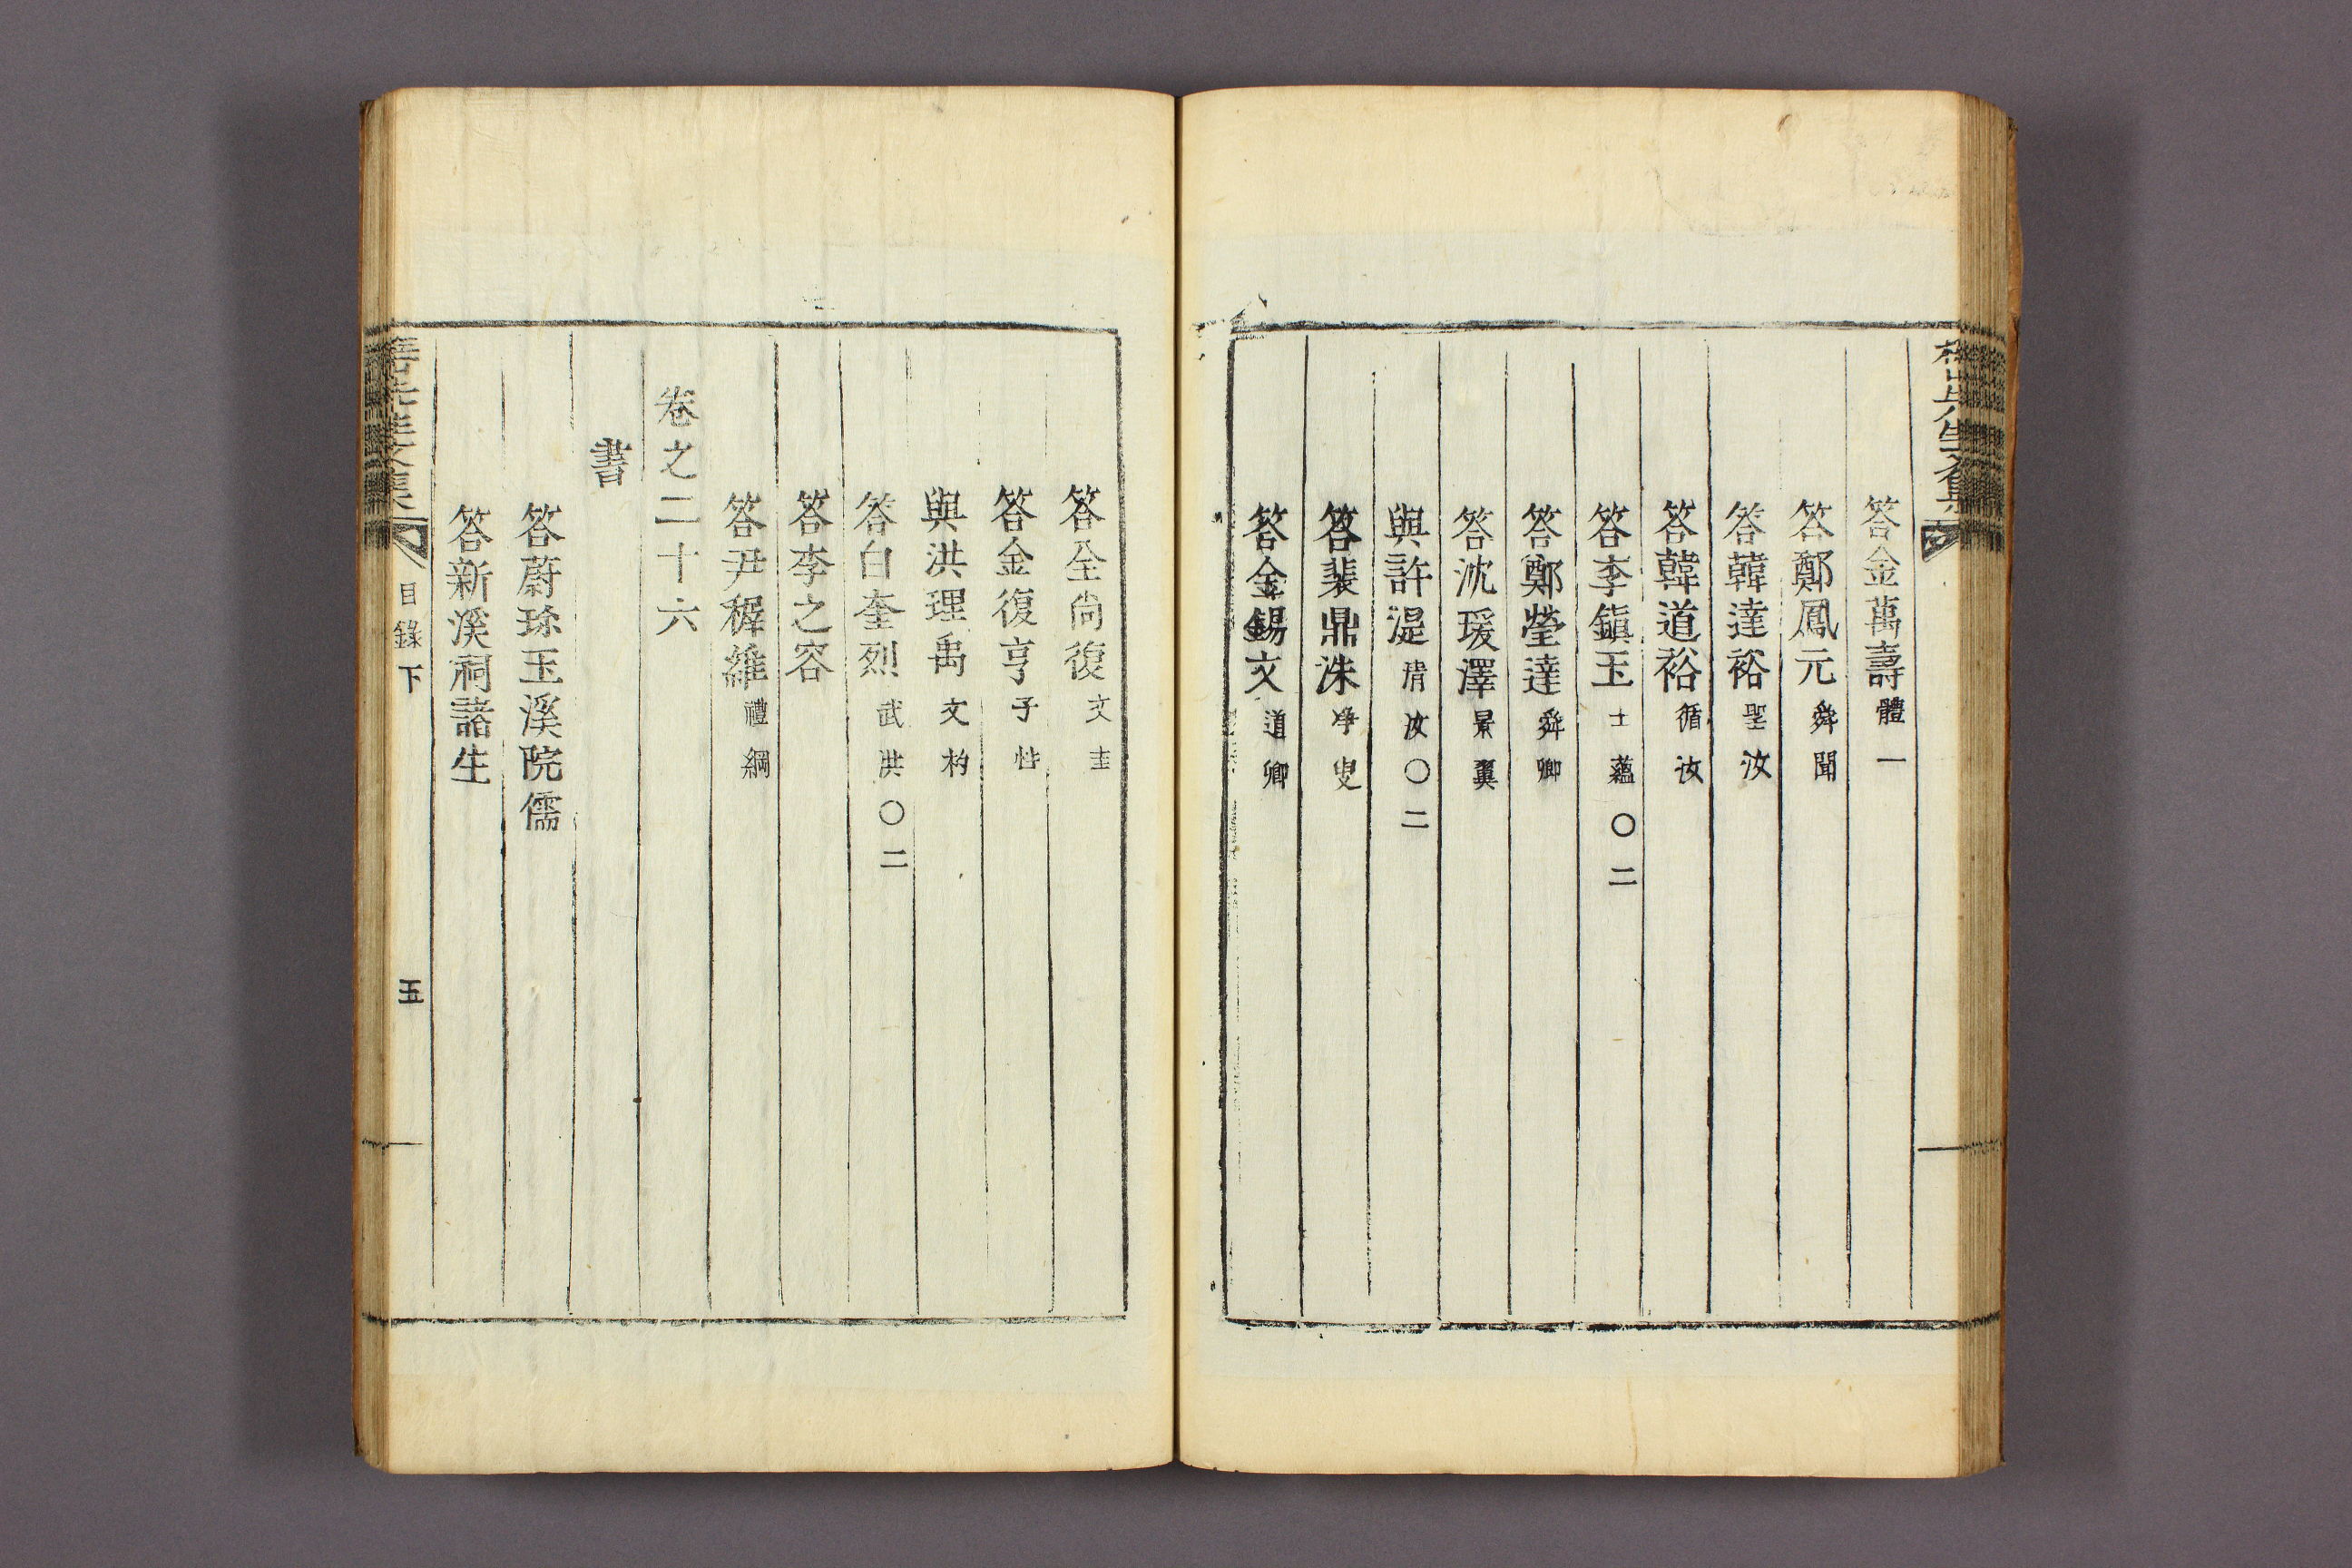 答金萬壽體一
答鄭鳳元舜聞
答韓達裕聖汝
答韓道裕循汝
答李鎭玉士蘊〇二
答鄭瑩達舜卿
答沈瑗澤景翼
與許湜清汝〇二
答裴鼎洙淨叟
答金錫文道卿
答全尙復文圭
答金復亨子
與洪理禹文
答白奎烈武洪〇二
答李之容
答尹穉維禮綱
卷之二十六
書
答蔚珍玉溪院儒
答新溪祠諸生
目錄下
五